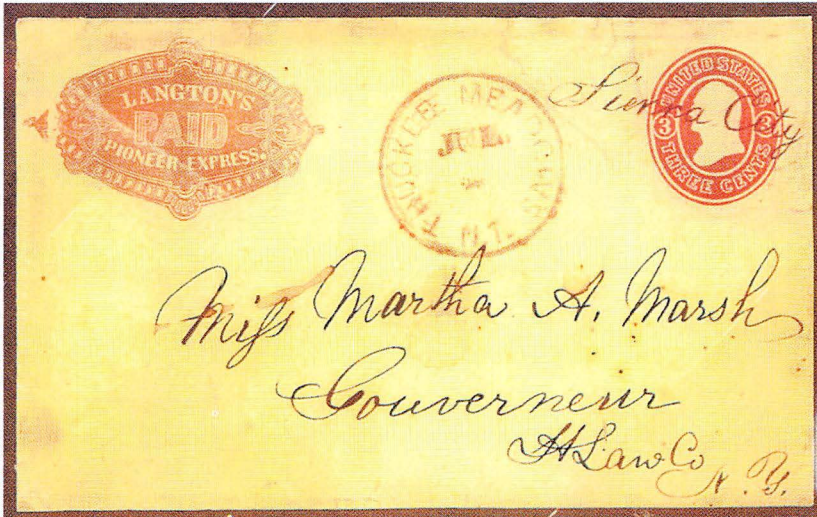 LANGTON'S
PAID
PIONEER EXPRESS.
TRUCKEE MEADOWS
JUL
N.T.
Sierra City
UNITED STATES
3 3
THREE CENTS
Miss Martha A. Marsh
Gouverneur
St Law Co
N.Y.